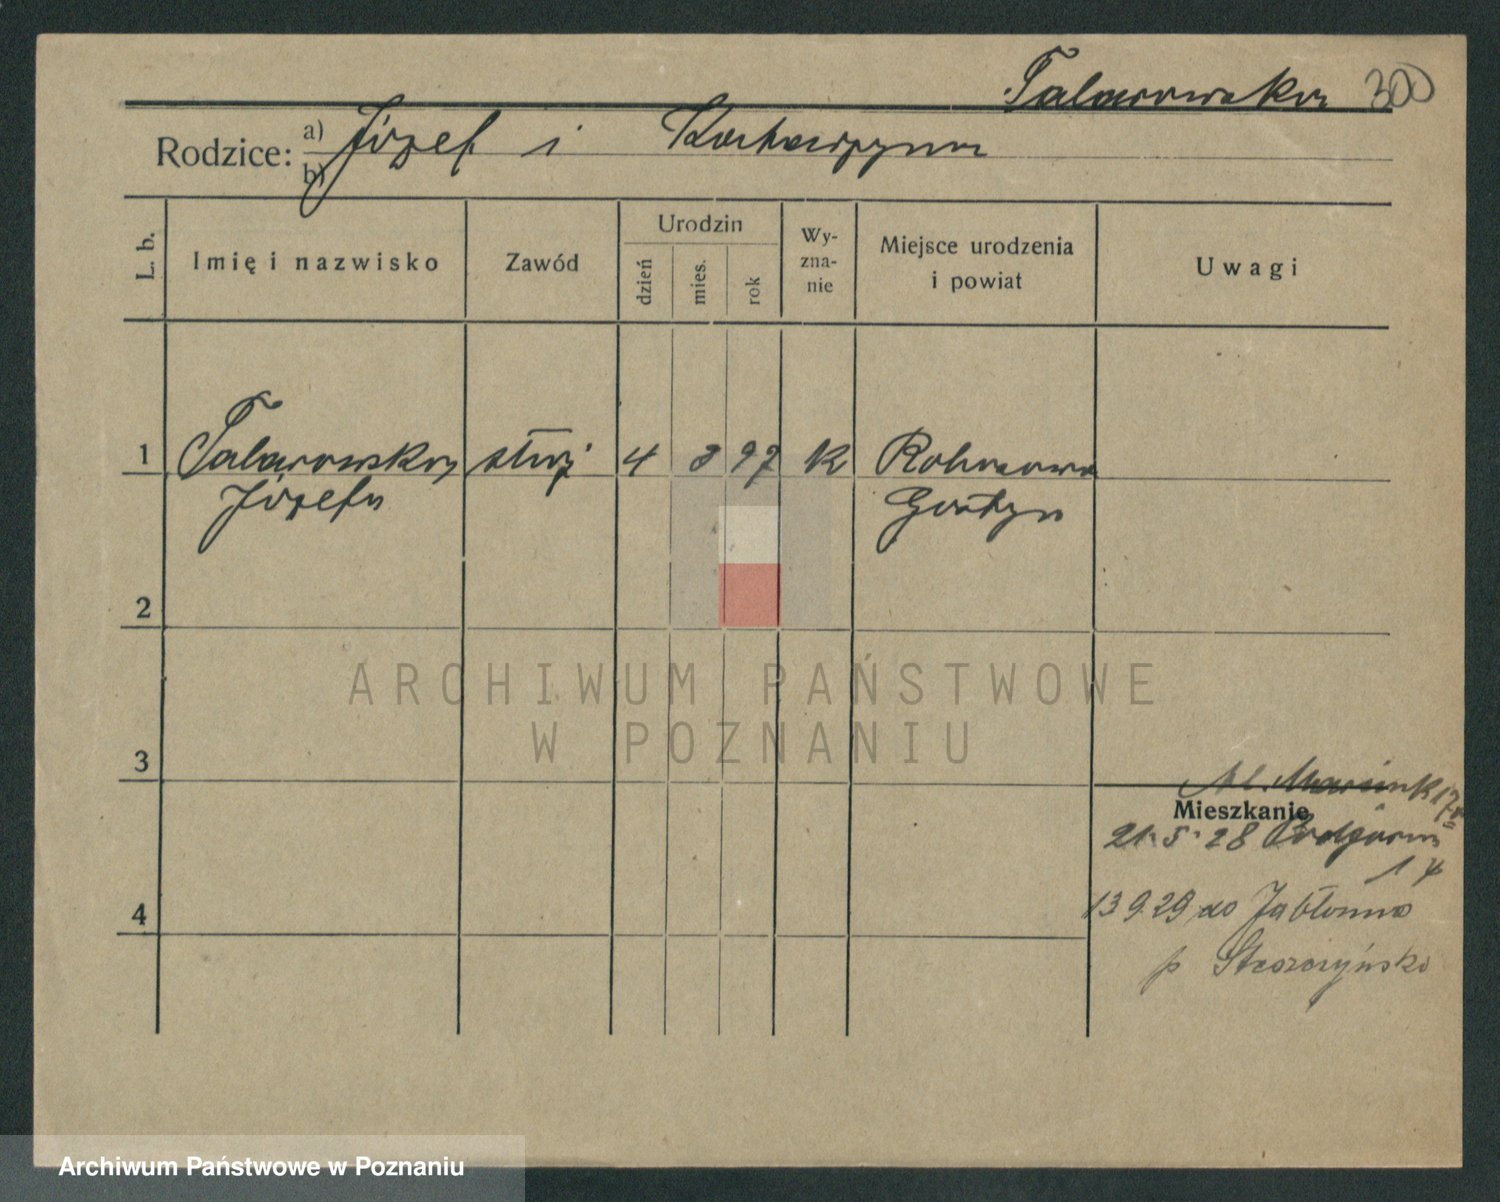 Talarowska 300
Rodzice: a) Józef i Katarzyna
b)
L. b. Imię i nazwisko Zawód Urodzin dzień mies. rok Wy-zna-nie Miejsce urodzenia i powiat Uwagi
1 Talarowska służ 4 3 97 k
Józefa Gostyn
2
ARCHIWUM PAŃSTWOWE
W POZNANIU
3
Al. Marcink 17
Mieszkanie
21.5.28 Podgórna
14
4 13 9.29 do Jabłonna
p
Archiwum Państwowe w Poznaniu